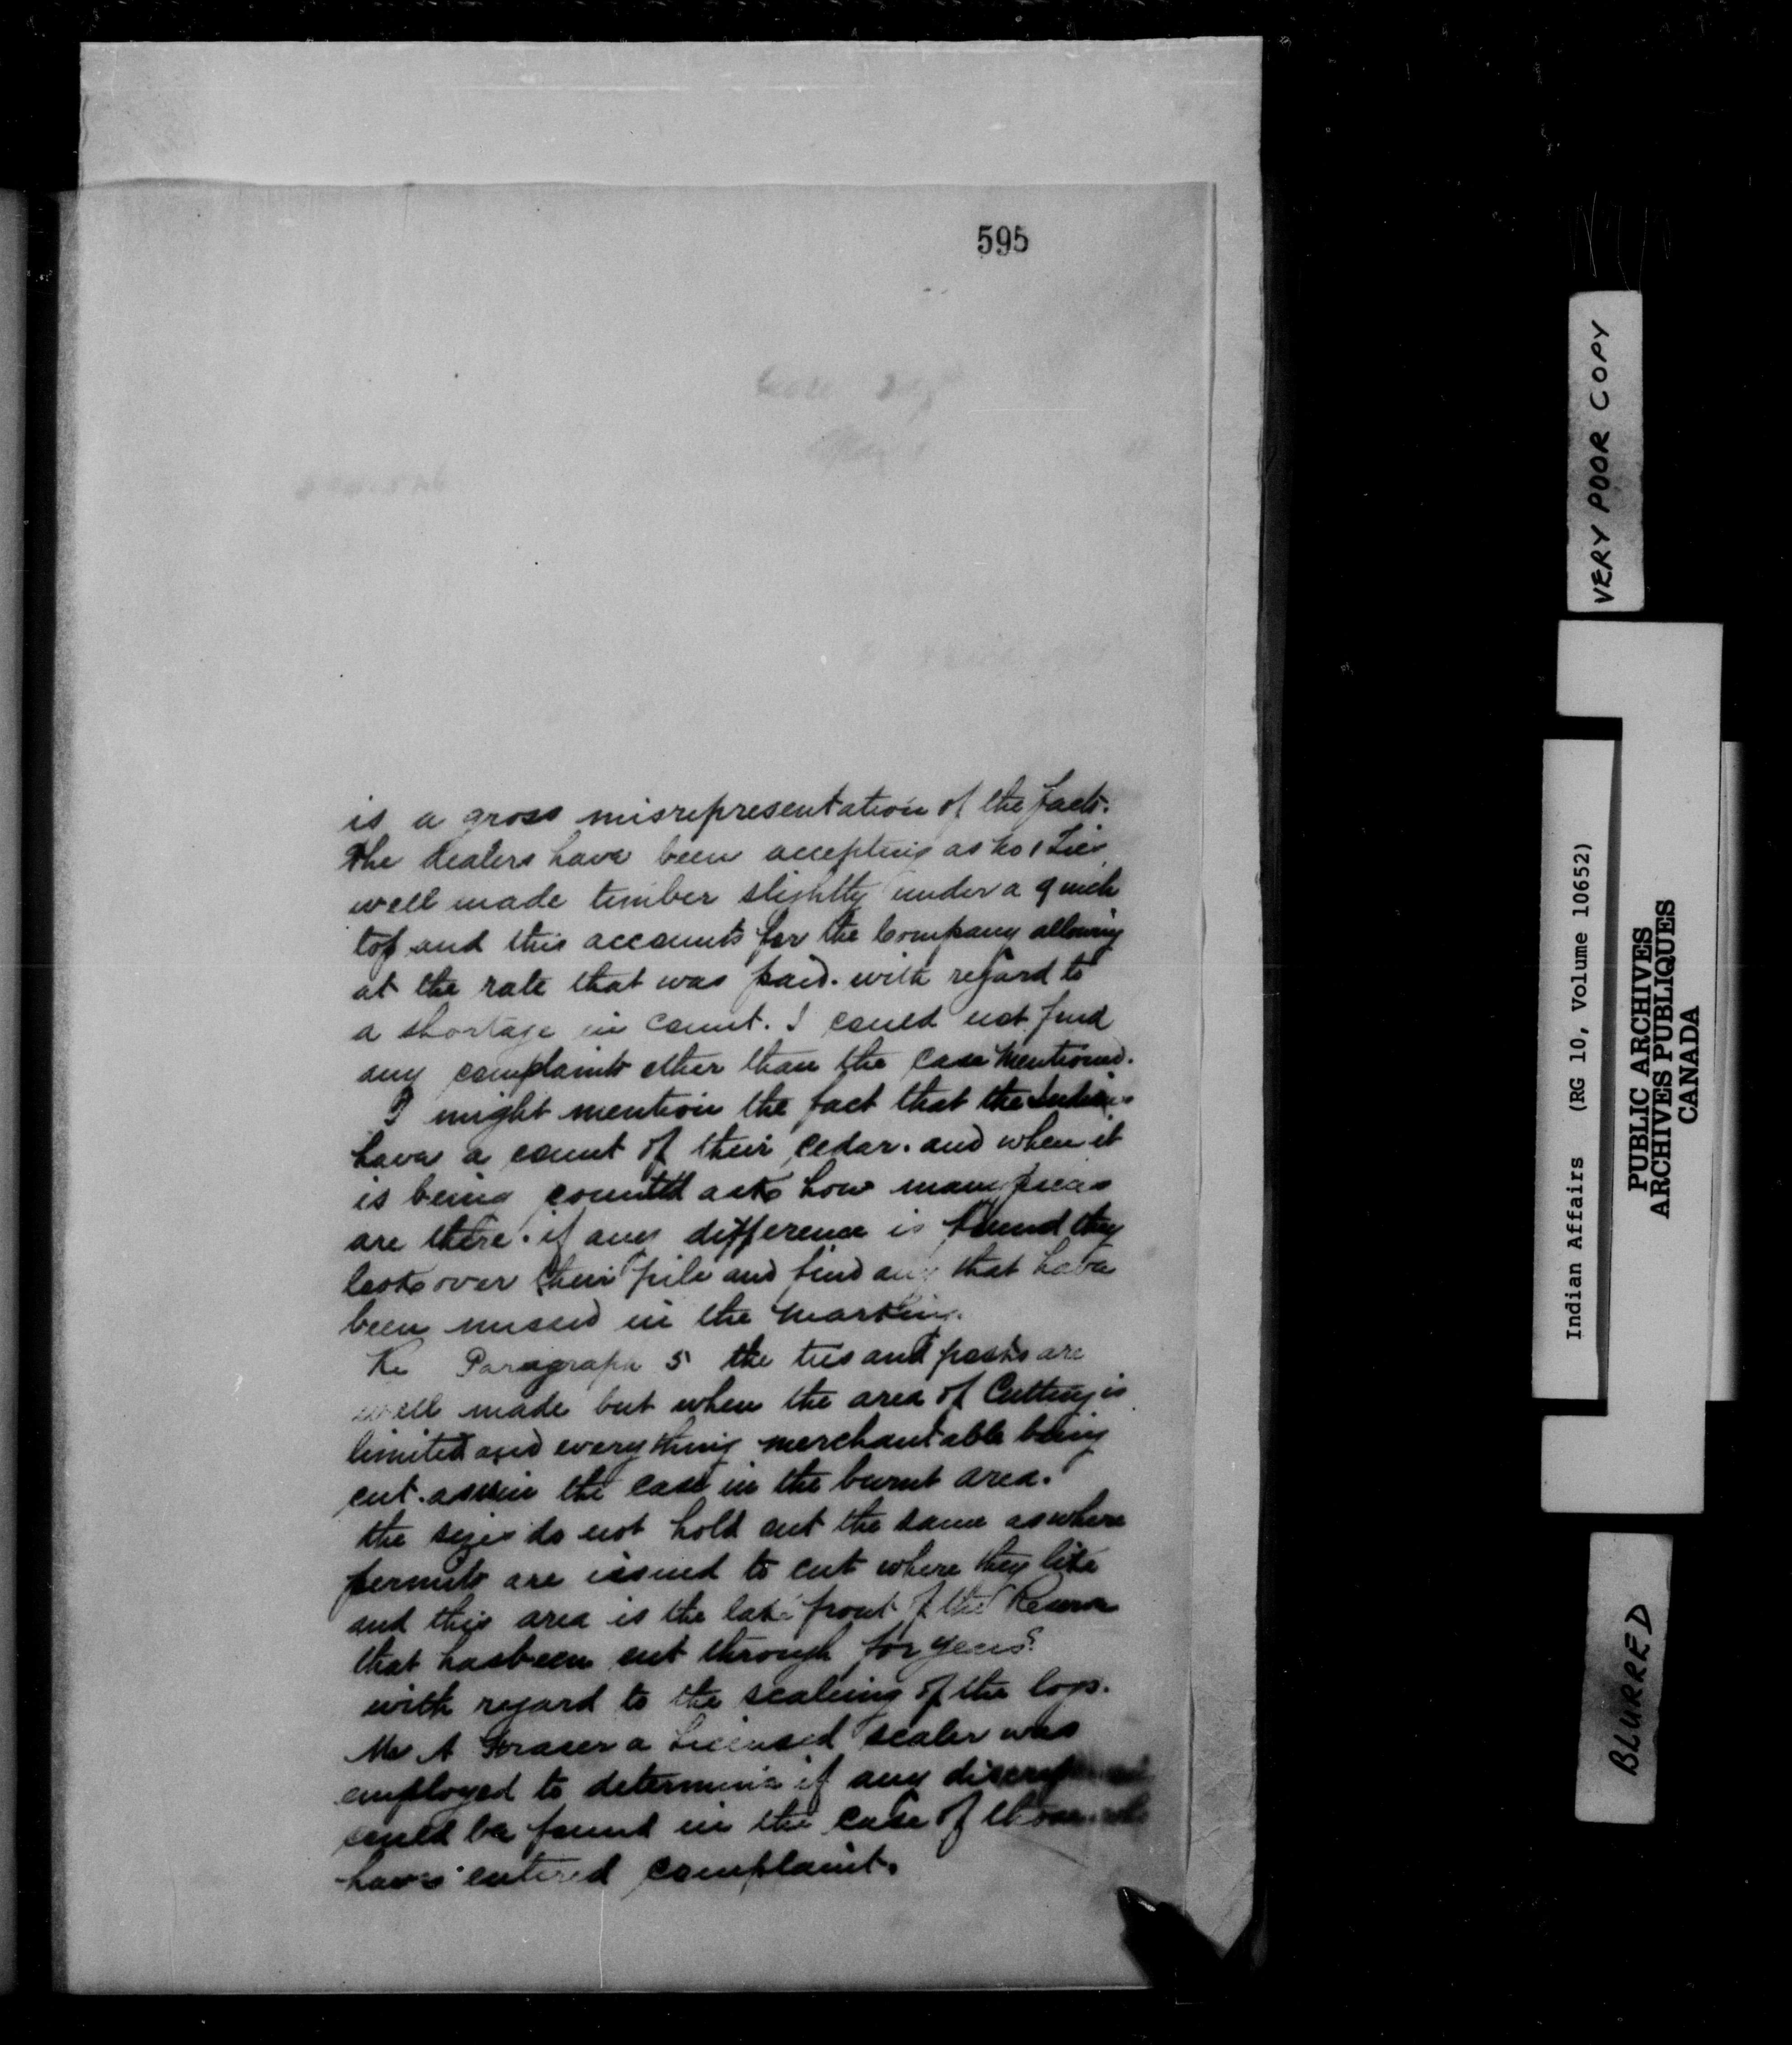 595
is a gross misrepresentation of the facts.
The dealers have been accepting as No 1 Ties
well made timber slightly under a 9 inch
top and this accounts for the Company allowing
at the rate that was paid. with regard to
a shortage in count. I could not find
any complaints other than the case mentioned.
I might mention the fact that the Indians
have a count of their cedar. and when it
is being counted ask how many pieces
are there. if any difference is found they
look over their pile and find any that have
been missed in the marking.
Re Paragraph 5 the ties and posts are
well made but when the area of Cutting is
limited and everything merchantable being
cut. as in the case in the burnt area.
the sizes do not hold out the same as where
permits are issued to cut where they like
and this area is the lake front of the Reserve
that has been cut through for years.
with regard to the scaling of the logs.
Mr A Fraser a Licensed scaler was
employed to determine if any
could be found in the case of those who
have entered complaint.
VERY POOR COPY
Indian Affairs (RG 10, Volume 10652)
PUBLIC ARCHIVES
ARCHIVES PUBLIQUES
CANADA
BLURRED